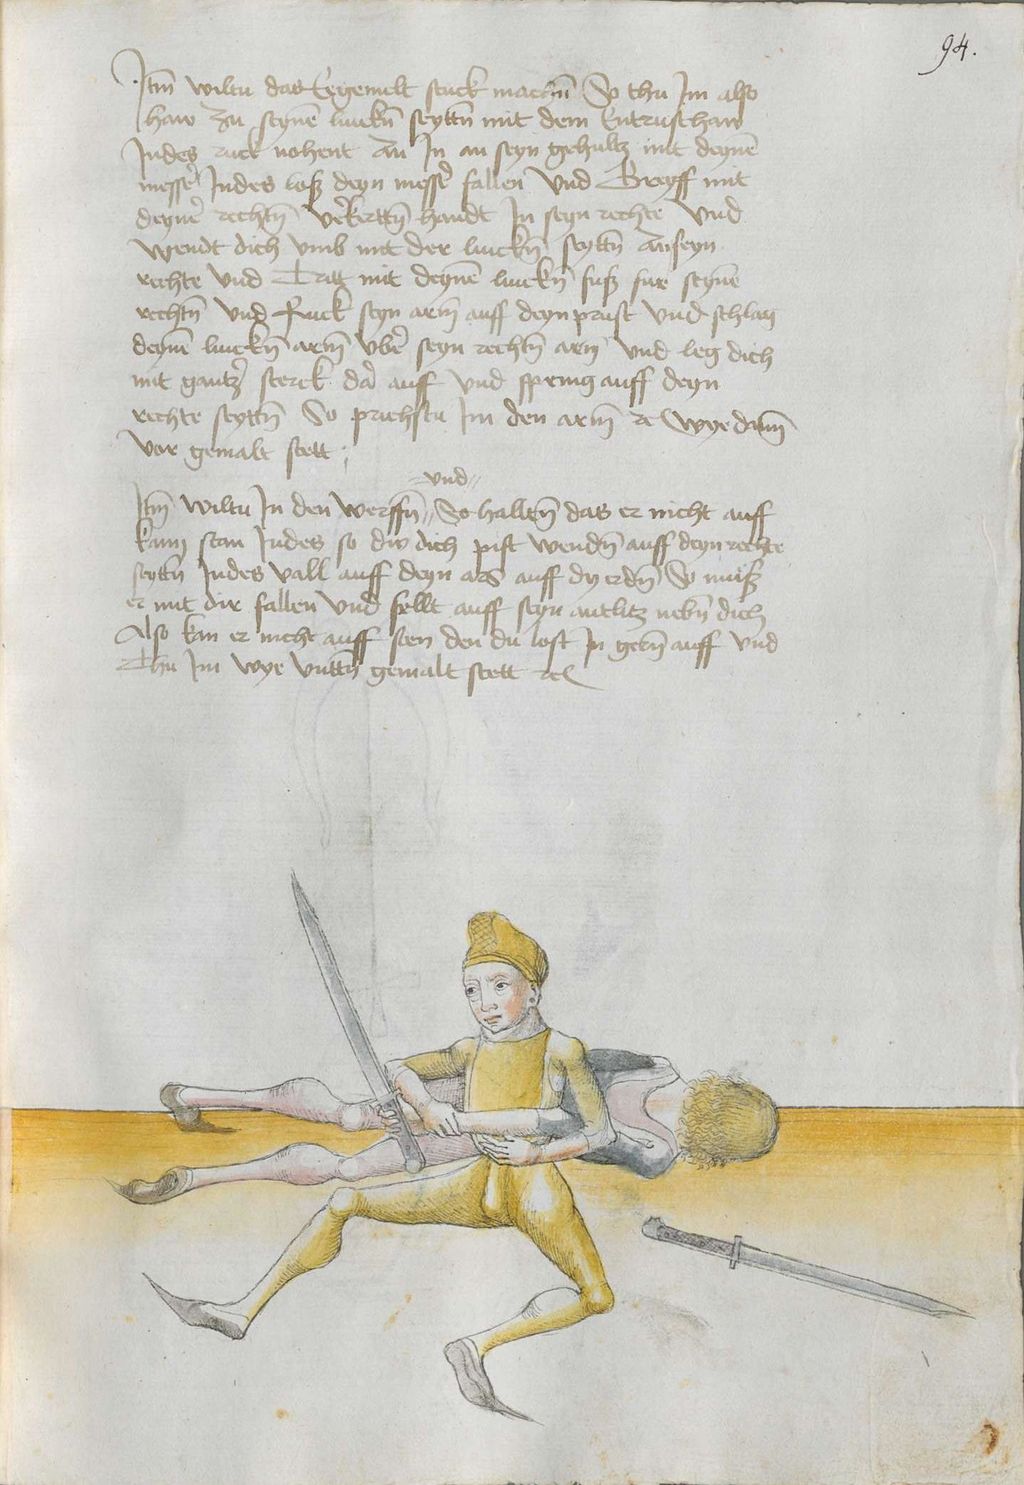 94.
Itm̄ wiltu das kegenult stuck machn̄ So thu Im also
haw zu seynē linckn̄ seyttn̄ mit dem Entrusthaw
Indes ruck nohent an In an seyn gehultz mit deynē
messer Indes losz deyn messer fallen Vnd Greyff mit
deyner rechtn̄ verkerttn̄ handt In seyn rechte Vnd
wendt dich vmb mit der linckn̄ seyttn̄ an seyn
rechte Vnd Tritt mit deynē linckn̄ fusz fur seynē
rechtn̄ Vnd Ruck seyn arm̄ auff deyn prust Vnd schlag
deynē linckn̄ arm̄ vber seyn rechtn̄ arm Vnd leg dich
mit gantzer sterck dar auff Vnd spring auff deyn
rechte seyttn̄ So prichstu Im den arm̄ Wye dann̄
vor gemalt stett
=vnd=
Itm̄ wiltu In den werffn̄ So halltn̄ das er nicht auff
kann stan Indes so dw dich pist wendn̄ auff deyn rechte
seyttn̄ Indes vall auff deyn ars auff dy erdn̄ So musz
er mit dir fallen Vnd fellt auff seyn antlitz nebn̄ dich
Also kan er nicht auff sten den du lost In gern̄ auff Vnd
Thu Im wye vnttn̄ gemalt stett